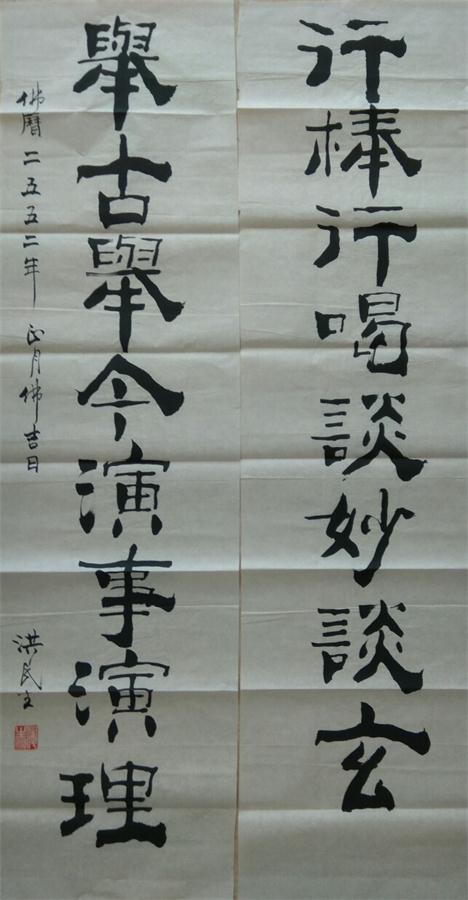 行棒行喝談妙談玄
舉古舉今演事演理
佛曆二五五二年 正月佛吉日
洪民主